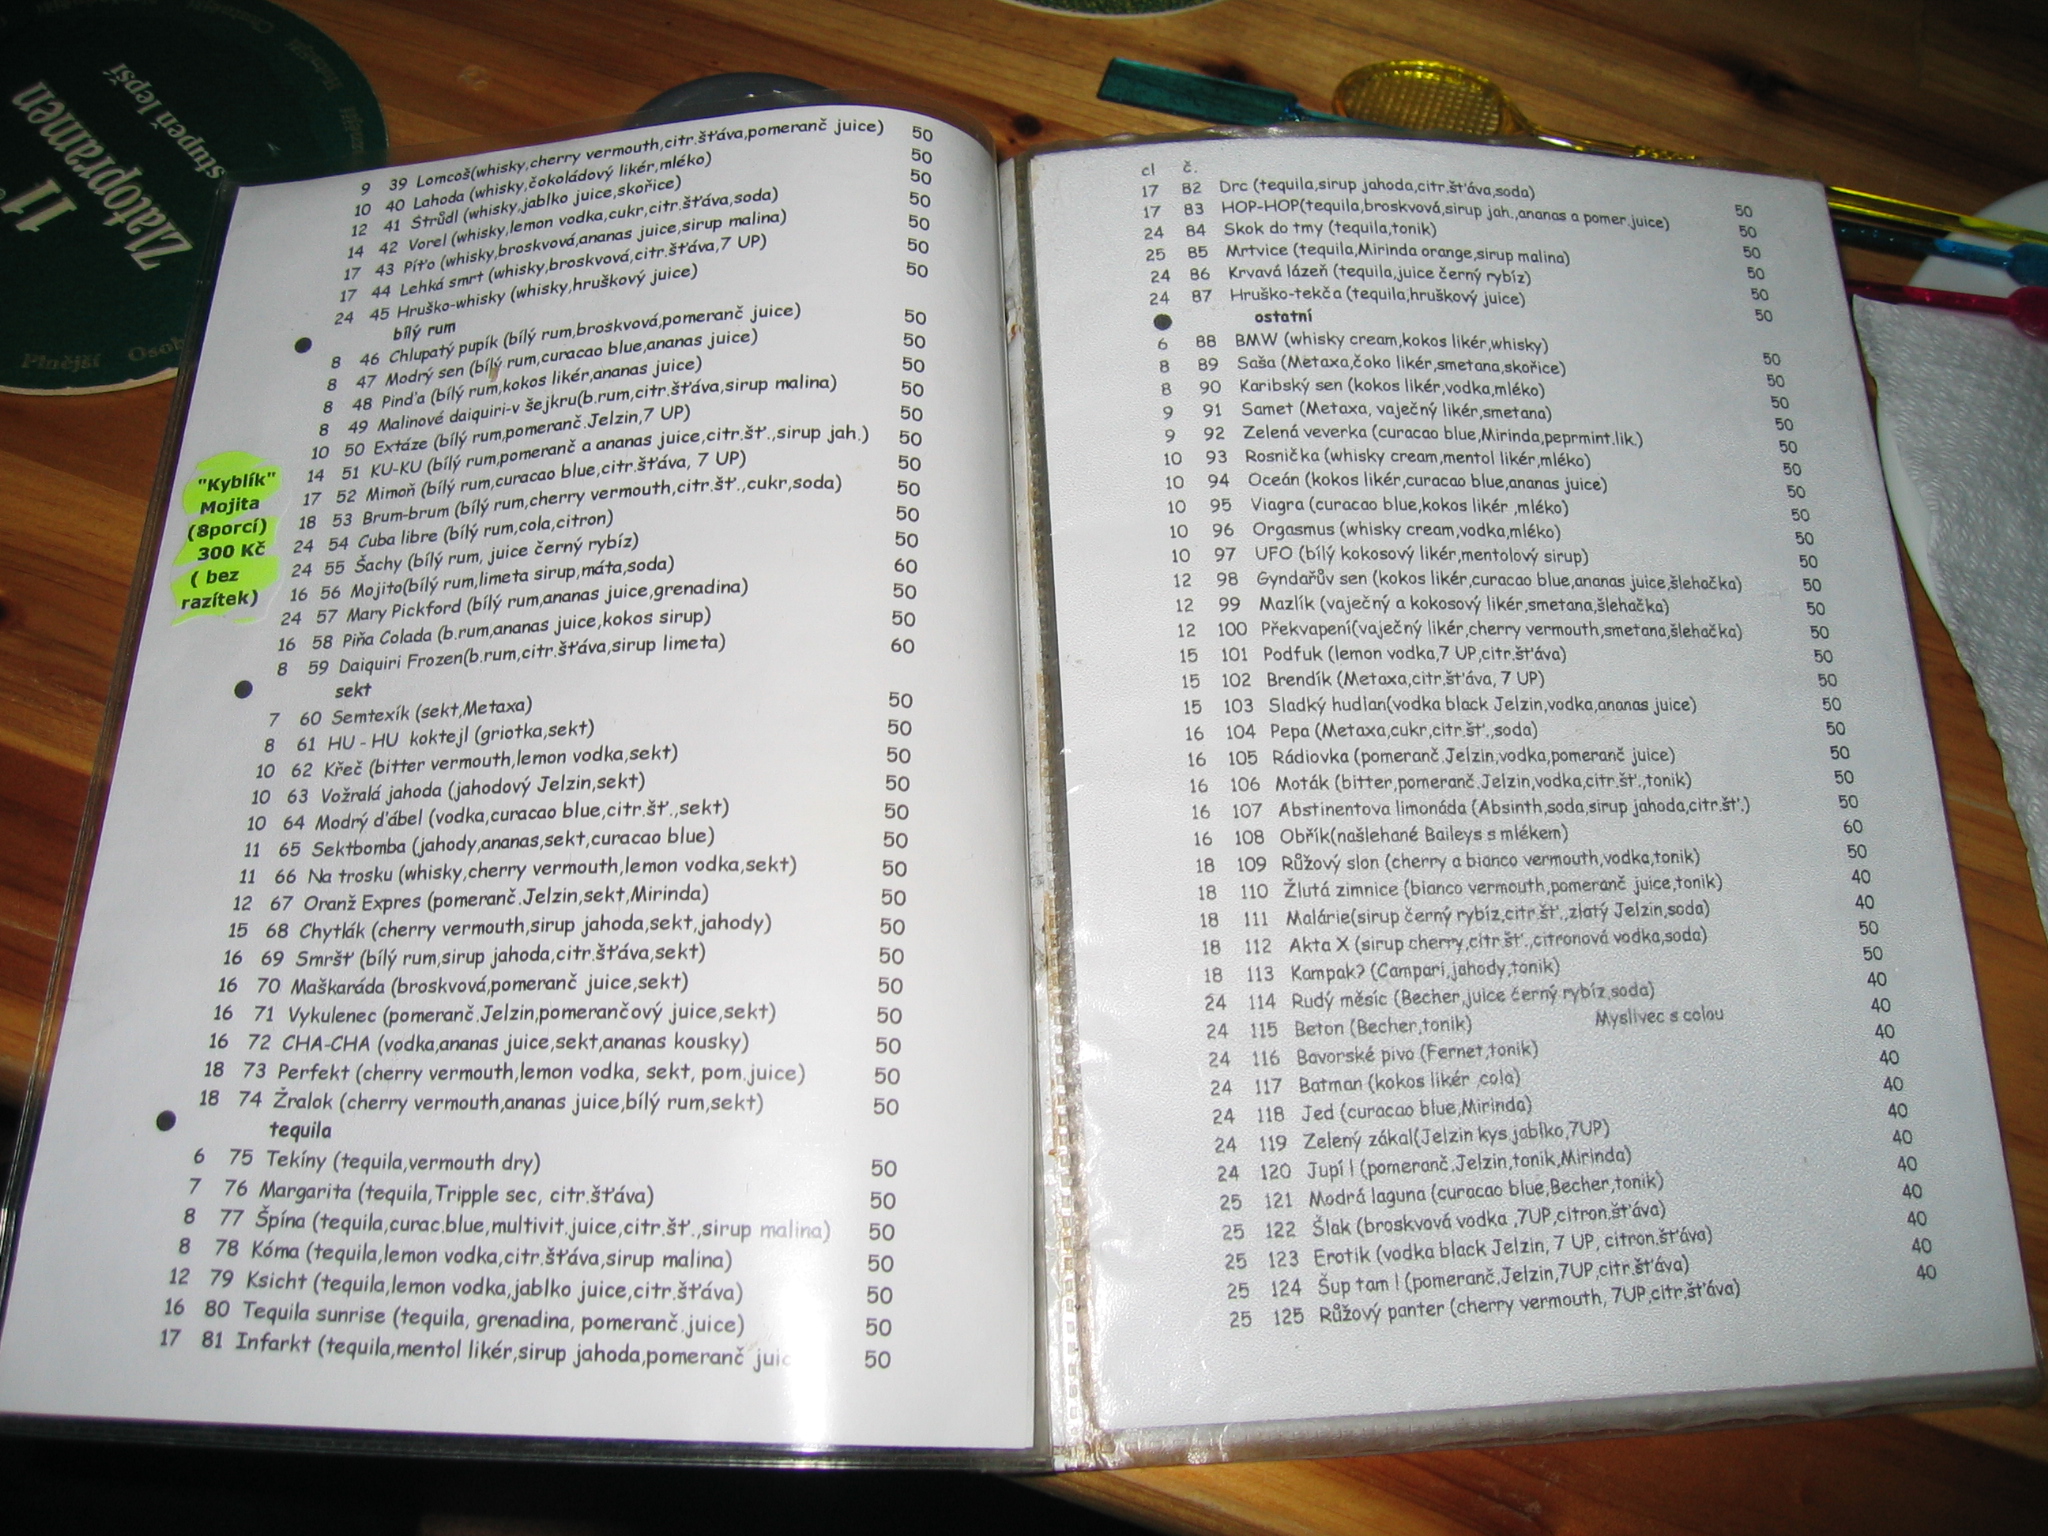 Zlatopramen
11
stupeň lepší
Plnější
9 39 Lomcoš(whisky,cherry vermouth,citr.šťáva,pomeranč juice) 50
10 40 Lahoda (whisky,čokoládový likér,mléko) 50
12 41 Štrůdl (whisky,jablko juice,skořice) 50
14 42 Vorel (whisky,lemon vodka,cukr,citr.šťáva,soda) 50
17 43 Píťo (whisky,broskvová,ananas juice,sirup malina) 50
17 44 Lehká smrt (whisky,broskvová,citr.šťáva,7 UP) 50
24 45 Hruško-whisky (whisky,hruškový juice) 50
bílý rum
8 46 Chlupatý pupík (bílý rum,broskvová,pomeranč juice) 50
8 47 Modrý sen (bílý rum,curacao blue,ananas juice) 50
8 48 Pinďa (bílý rum,kokos likér,ananas juice) 50
8 49 Malinové daiquiri-v šejkru(b.rum,citr.šťáva,sirup malina) 50
10 50 Extáze (bílý rum,pomeranč.Jelzin,7 UP) 50
14 51 KU-KU (bílý rum,pomeranč a ananas juice,citr.šť.,sirup jah.) 50
17 52 Mimoň (bílý rum,curacao blue,citr.šťáva, 7 UP) 50
18 53 Brum-brum (bílý rum,cherry vermouth,citr.šť.,cukr,soda) 50
24 54 Cuba libre (bílý rum,cola,citron) 50
24 55 Šachy (bílý rum, juice černý rybíz) 50
16 56 Mojito(bílý rum,limeta sirup,máta,soda) 60
24 57 Mary Pickford (bílý rum,ananas juice,grenadina) 50
16 58 Piňa Colada (b.rum,ananas juice,kokos sirup) 50
8 59 Daiquiri Frozen(b.rum,citr.šťáva,sirup limeta) 60
sekt
7 60 Semtexík (sekt,Metaxa) 50
8 61 HU - HU koktejl (griotka,sekt) 50
10 62 Křeč (bitter vermouth,lemon vodka,sekt) 50
10 63 Vožralá jahoda (jahodový Jelzin,sekt) 50
10 64 Modrý ďábel (vodka,curacao blue,citr.šť.,sekt) 50
11 65 Sektbomba (jahody,ananas,sekt,curacao blue) 50
11 66 Na trosku (whisky,cherry vermouth,lemon vodka,sekt) 50
12 67 Oranž Expres (pomeranč.Jelzin,sekt,Mirinda) 50
15 68 Chytlák (cherry vermouth,sirup jahoda,sekt,jahody) 50
16 69 Smršť (bílý rum,sirup jahoda,citr.šťáva,sekt) 50
16 70 Maškaráda (broskvová,pomeranč juice,sekt) 50
16 71 Vykulenec (pomeranč.Jelzin,pomerančový juice,sekt) 50
16 72 CHA-CHA (vodka,ananas juice,sekt,ananas kousky) 50
18 73 Perfekt (cherry vermouth,lemon vodka, sekt, pom.juice) 50
18 74 Žralok (cherry vermouth,ananas juice,bílý rum,sekt) 50
tequila
6 75 Tekíny (tequila,vermouth dry) 50
7 76 Margarita (tequila,Tripple sec, citr.šťáva) 50
8 77 Špína (tequila,curac.blue,multivit.juice,citr.šť.,sirup malina) 50
8 78 Kóma (tequila,lemon vodka,citr.šťáva,sirup malina) 50
12 79 Ksicht (tequila,lemon vodka,jablko juice,citr.šťáva) 50
16 80 Tequila sunrise (tequila, grenadina, pomeranč.juice) 50
17 81 Infarkt (tequila,mentol likér,sirup jahoda,pomeranč juic 50
"Kyblík"
Mojita
(8porcí)
300 Kč
( bez
razítek)
cl č.
17 82 Drc (tequila,sirup jahoda,citr.šťáva,soda) 50
17 83 HOP-HOP(tequila,broskvová,sirup jah.,ananas a pomer.juice) 50
24 84 Skok do tmy (tequila,tonik) 50
25 85 Mrtvice (tequila,Mirinda orange,sirup malina) 50
24 86 Krvavá lázeň (tequila,juice černý rybíz) 50
24 87 Hruško-tekča (tequila,hruškový juice) 50
ostatní
6 88 BMW (whisky cream,kokos likér,whisky) 50
8 89 Saša (Metaxa,čoko likér,smetana,skořice) 50
8 90 Karibský sen (kokos likér,vodka,mléko) 50
9 91 Samet (Metaxa, vaječný likér,smetana) 50
9 92 Zelená veverka (curacao blue,Mirinda,peprmint.lik.) 50
10 93 Rosnička (whisky cream,mentol likér,mléko) 50
10 94 Oceán (kokos likér,curacao blue,ananas juice) 50
10 95 Viagra (curacao blue,kokos likér ,mléko) 50
10 96 Orgasmus (whisky cream,vodka,mléko) 50
10 97 UFO (bílý kokosový likér,mentolový sirup) 50
12 98 Gyndařův sen (kokos likér,curacao blue,ananas juice,šlehačka) 50
12 99 Mazlík (vaječný a kokosový likér,smetana,šlehačka) 50
12 100 Překvapení(vaječný likér,cherry vermouth,smetana,šlehačka) 50
15 101 Podfuk (lemon vodka,7 UP,citr.šťáva) 50
15 102 Brendík (Metaxa,citr.šťáva, 7 UP) 50
15 103 Sladký hudlan(vodka black Jelzin,vodka,ananas juice) 50
16 104 Pepa (Metaxa,cukr,citr.šť.,soda) 50
16 105 Rádiovka (pomeranč.Jelzin,vodka,pomeranč juice) 50
16 106 Moták (bitter,pomeranč.Jelzin,vodka,citr.šť.,tonik) 50
16 107 Abstinentova limonáda (Absinth,soda,sirup jahoda,citr.šť.) 50
16 108 Obřík(našlehané Baileys s mlékem) 60
18 109 Růžový slon (cherry a bianco vermouth,vodka,tonik) 50
18 110 Žlutá zimnice (bianco vermouth,pomeranč juice,tonik) 40
18 111 Malárie(sirup černý rybíz,citr.šť.,zlatý Jelzin,soda) 40
18 112 Akta X (sirup cherry,citr.šť.,citronová vodka,soda) 50
18 113 Kampak? (Campari,jahody,tonik) 50
24 114 Rudý měsíc (Becher,juice černý rybíz,soda) 40
24 115 Beton (Becher,tonik) Myslivec s colou 40
24 116 Bavorské pivo (Fernet,tonik) 40
24 117 Batman (kokos likér ,cola) 40
24 118 Jed (curacao blue,Mirinda) 40
24 119 Zelený zákal(Jelzin kys.jablko,7UP) 40
24 120 Jupí ! (pomeranč.Jelzin,tonik,Mirinda) 40
25 121 Modrá laguna (curacao blue,Becher,tonik) 40
25 122 Šlak (broskvová vodka ,7UP,citron.šťáva) 40
25 123 Erotik (vodka black Jelzin, 7 UP, citron.šťáva) 40
25 124 Šup tam ! (pomeranč.Jelzin,7UP,citr.šťáva) 40
25 125 Růžový panter (cherry vermouth, 7UP,citr.šťáva) 40